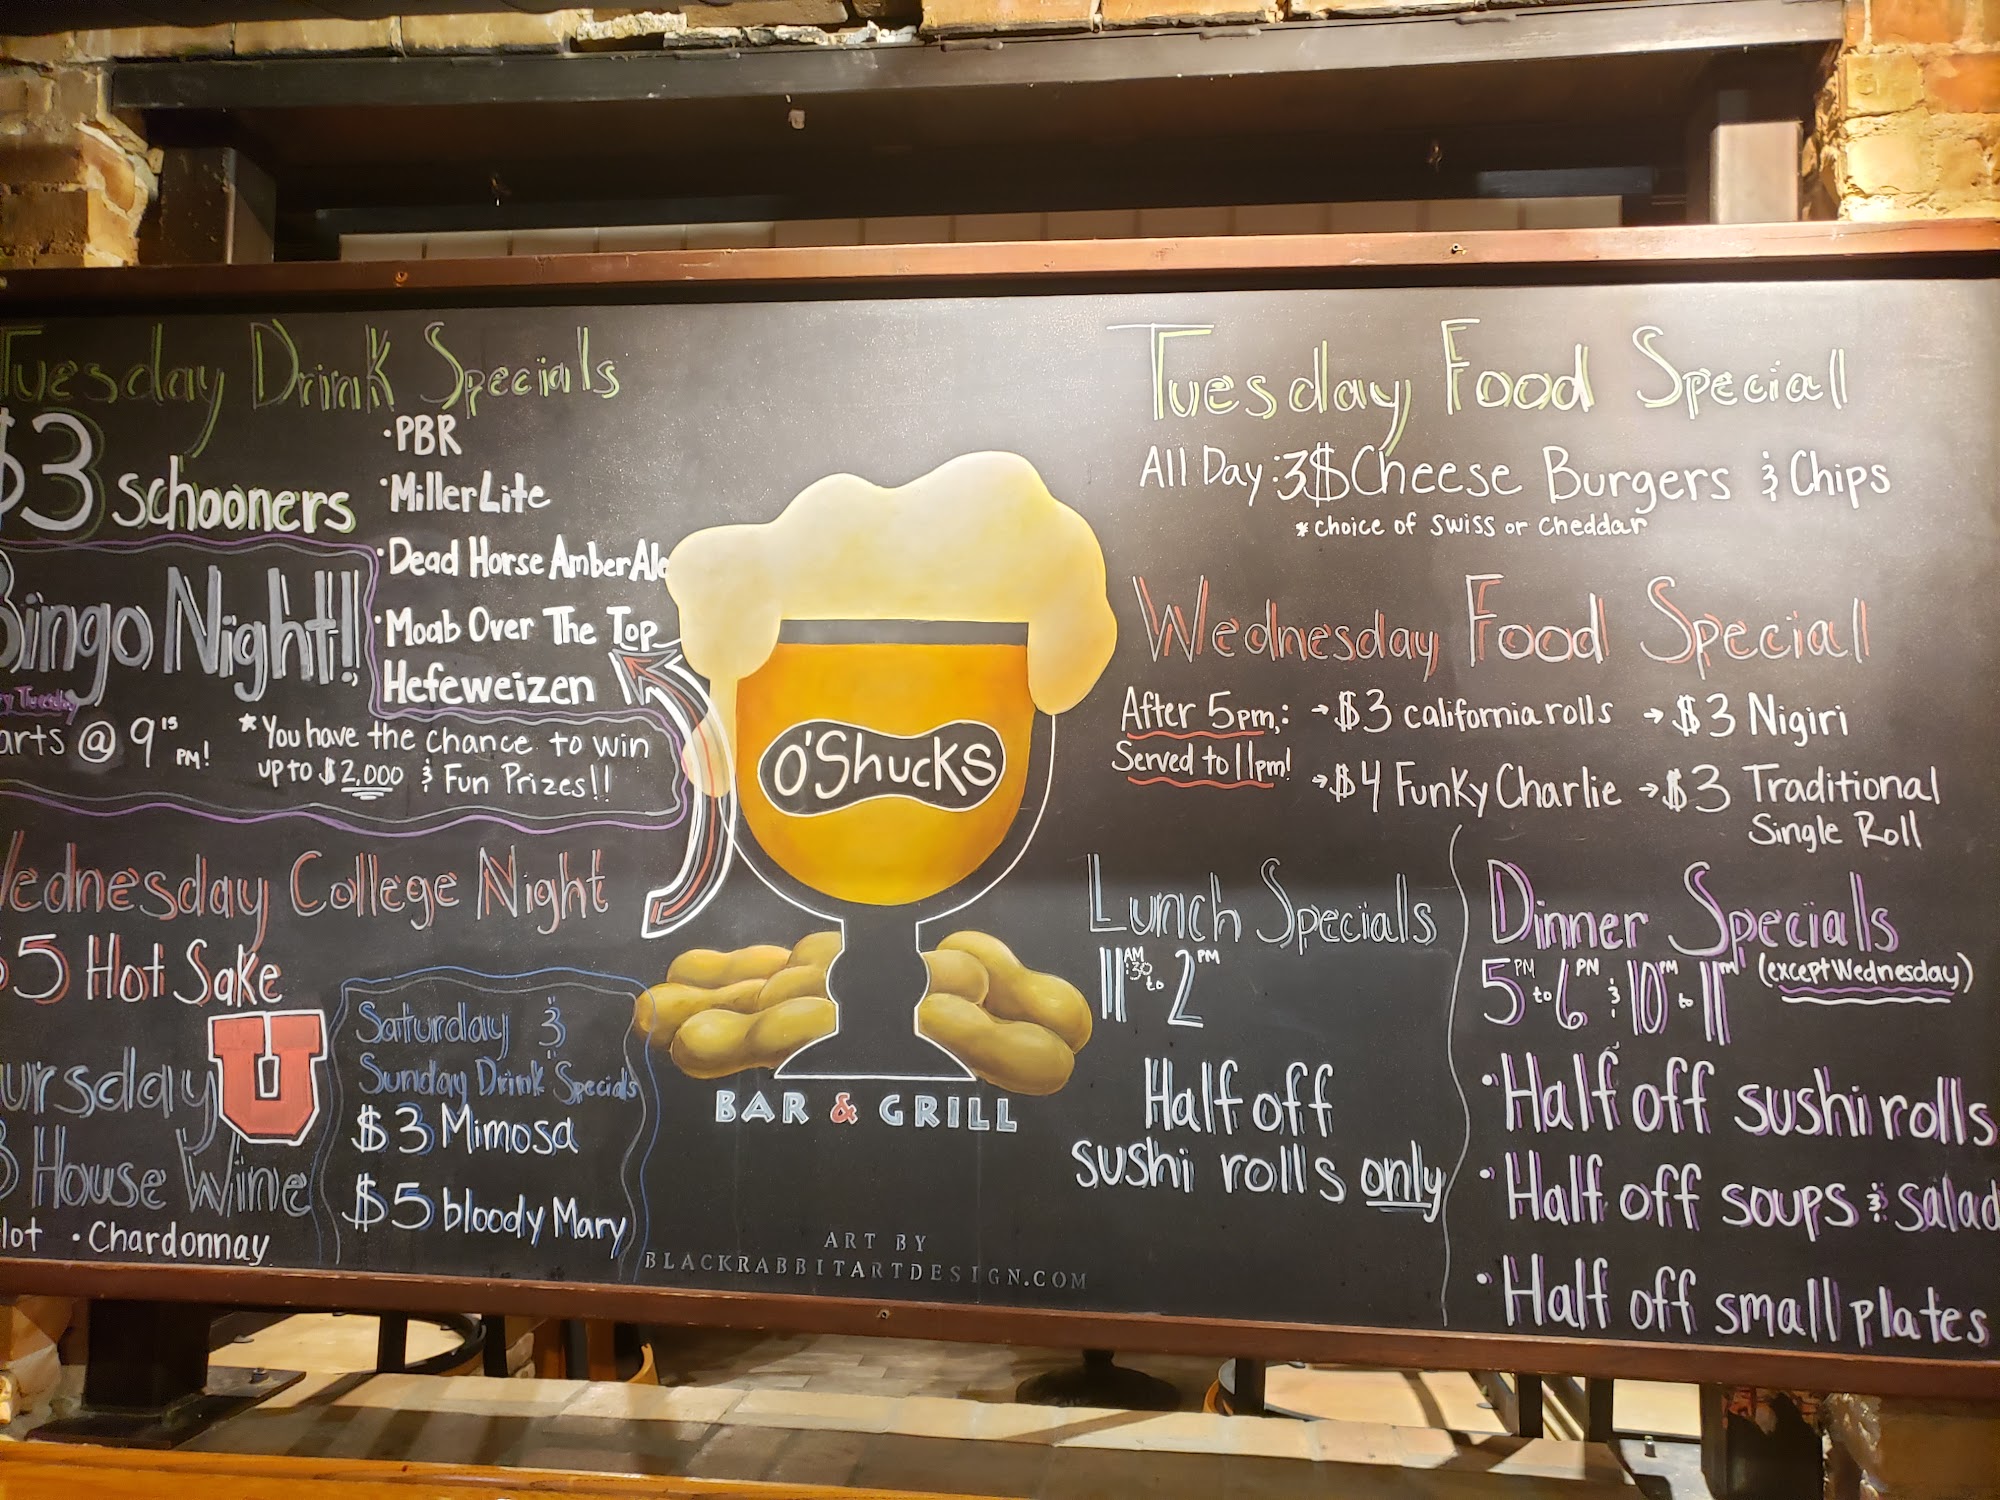 Tuesday Drink Specials
$3 schooners
• PBR
• Miller Lite
• Dead Horse Amber Ale
• Moab Over The Top
Hefeweizen
Bingo Night!!
Tuesday
arts @ 9 15 PM!
* You have the chance to win
up to $2,000 & Fun Prizes!!
Wednesday College Night
$5 Hot Sake
U
ursday
House Wine
lot • Chardonnay
Saturday &
Sunday Drink Specials
$3 Mimosa
$5 bloody Mary
O'Shucks
BAR & GRILL
ART BY
BLACKRABBITARTDESIGN.COM
Tuesday Food Special
All Day: 3$ Cheese Burgers & Chips
* choice of swiss or cheddar
Wednesday Food Special
After 5pm,: → $3 california rolls → $3 Nigiri
Served to 11pm! → $4 Funky Charlie → $3 Traditional
Single Roll
Lunch Specials
11 AM :30 to 2 PM
Half off
sushi rolls only
Dinner Specials
5 PM to 6 PN & 10 PM to 11 PM (except Wednesday)
• Half off sushi rolls
• Half off soups & salad
• Half off small plates